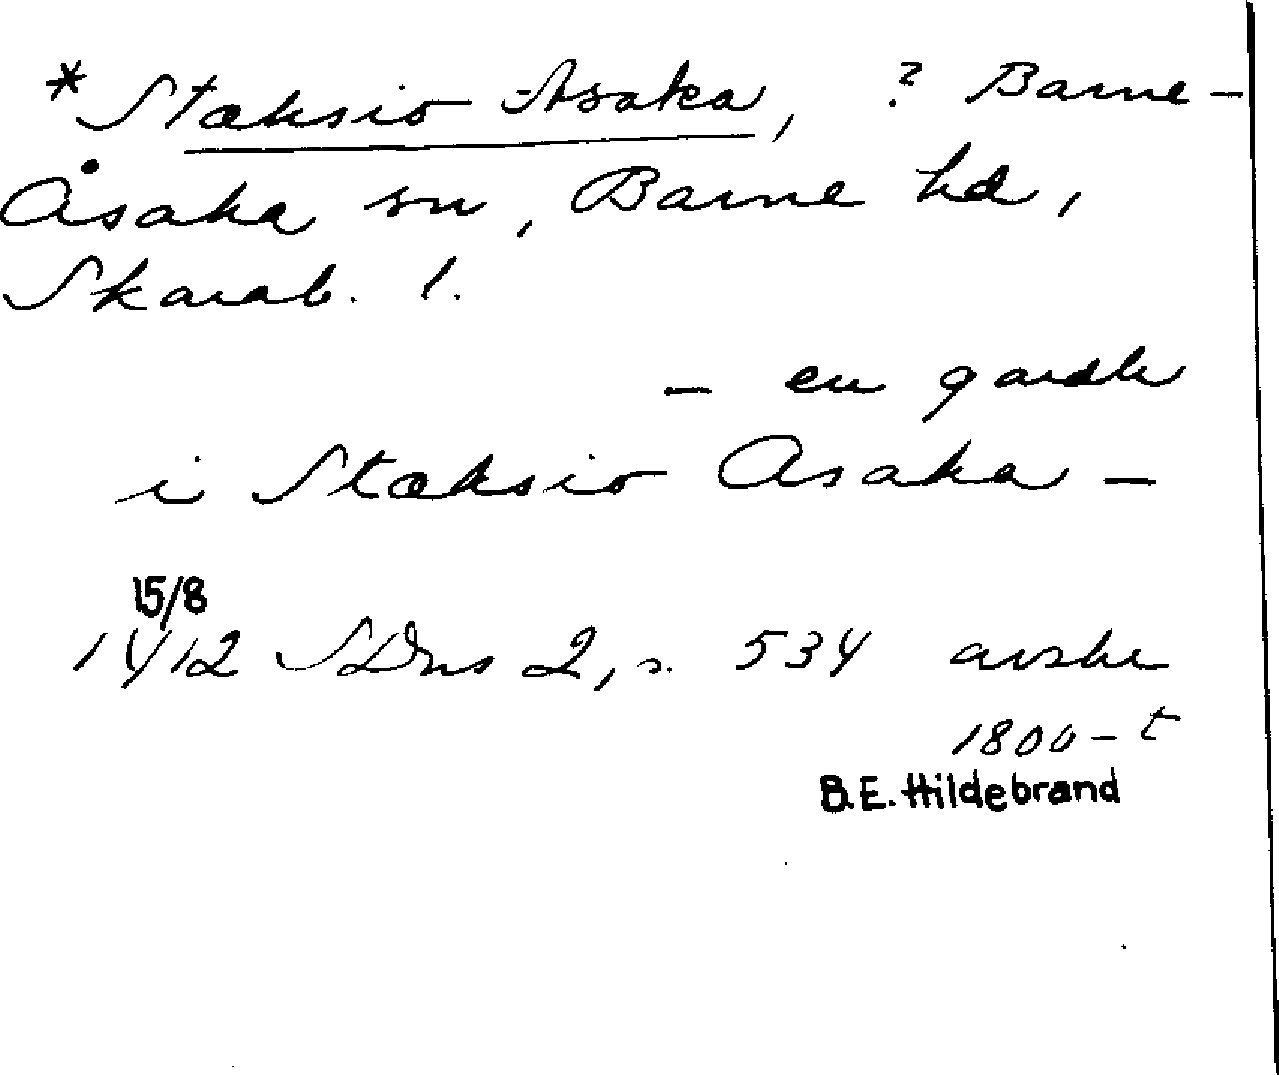 * Stæksio Asaka, ? Barne-
Åsaka sn, Barne hd,
Skarab. l.
- en gardh
i Stæksio Asaka -
15/8
1412 SDns 2, s. 534 avskr
1800-t
B.E. Hildebrand